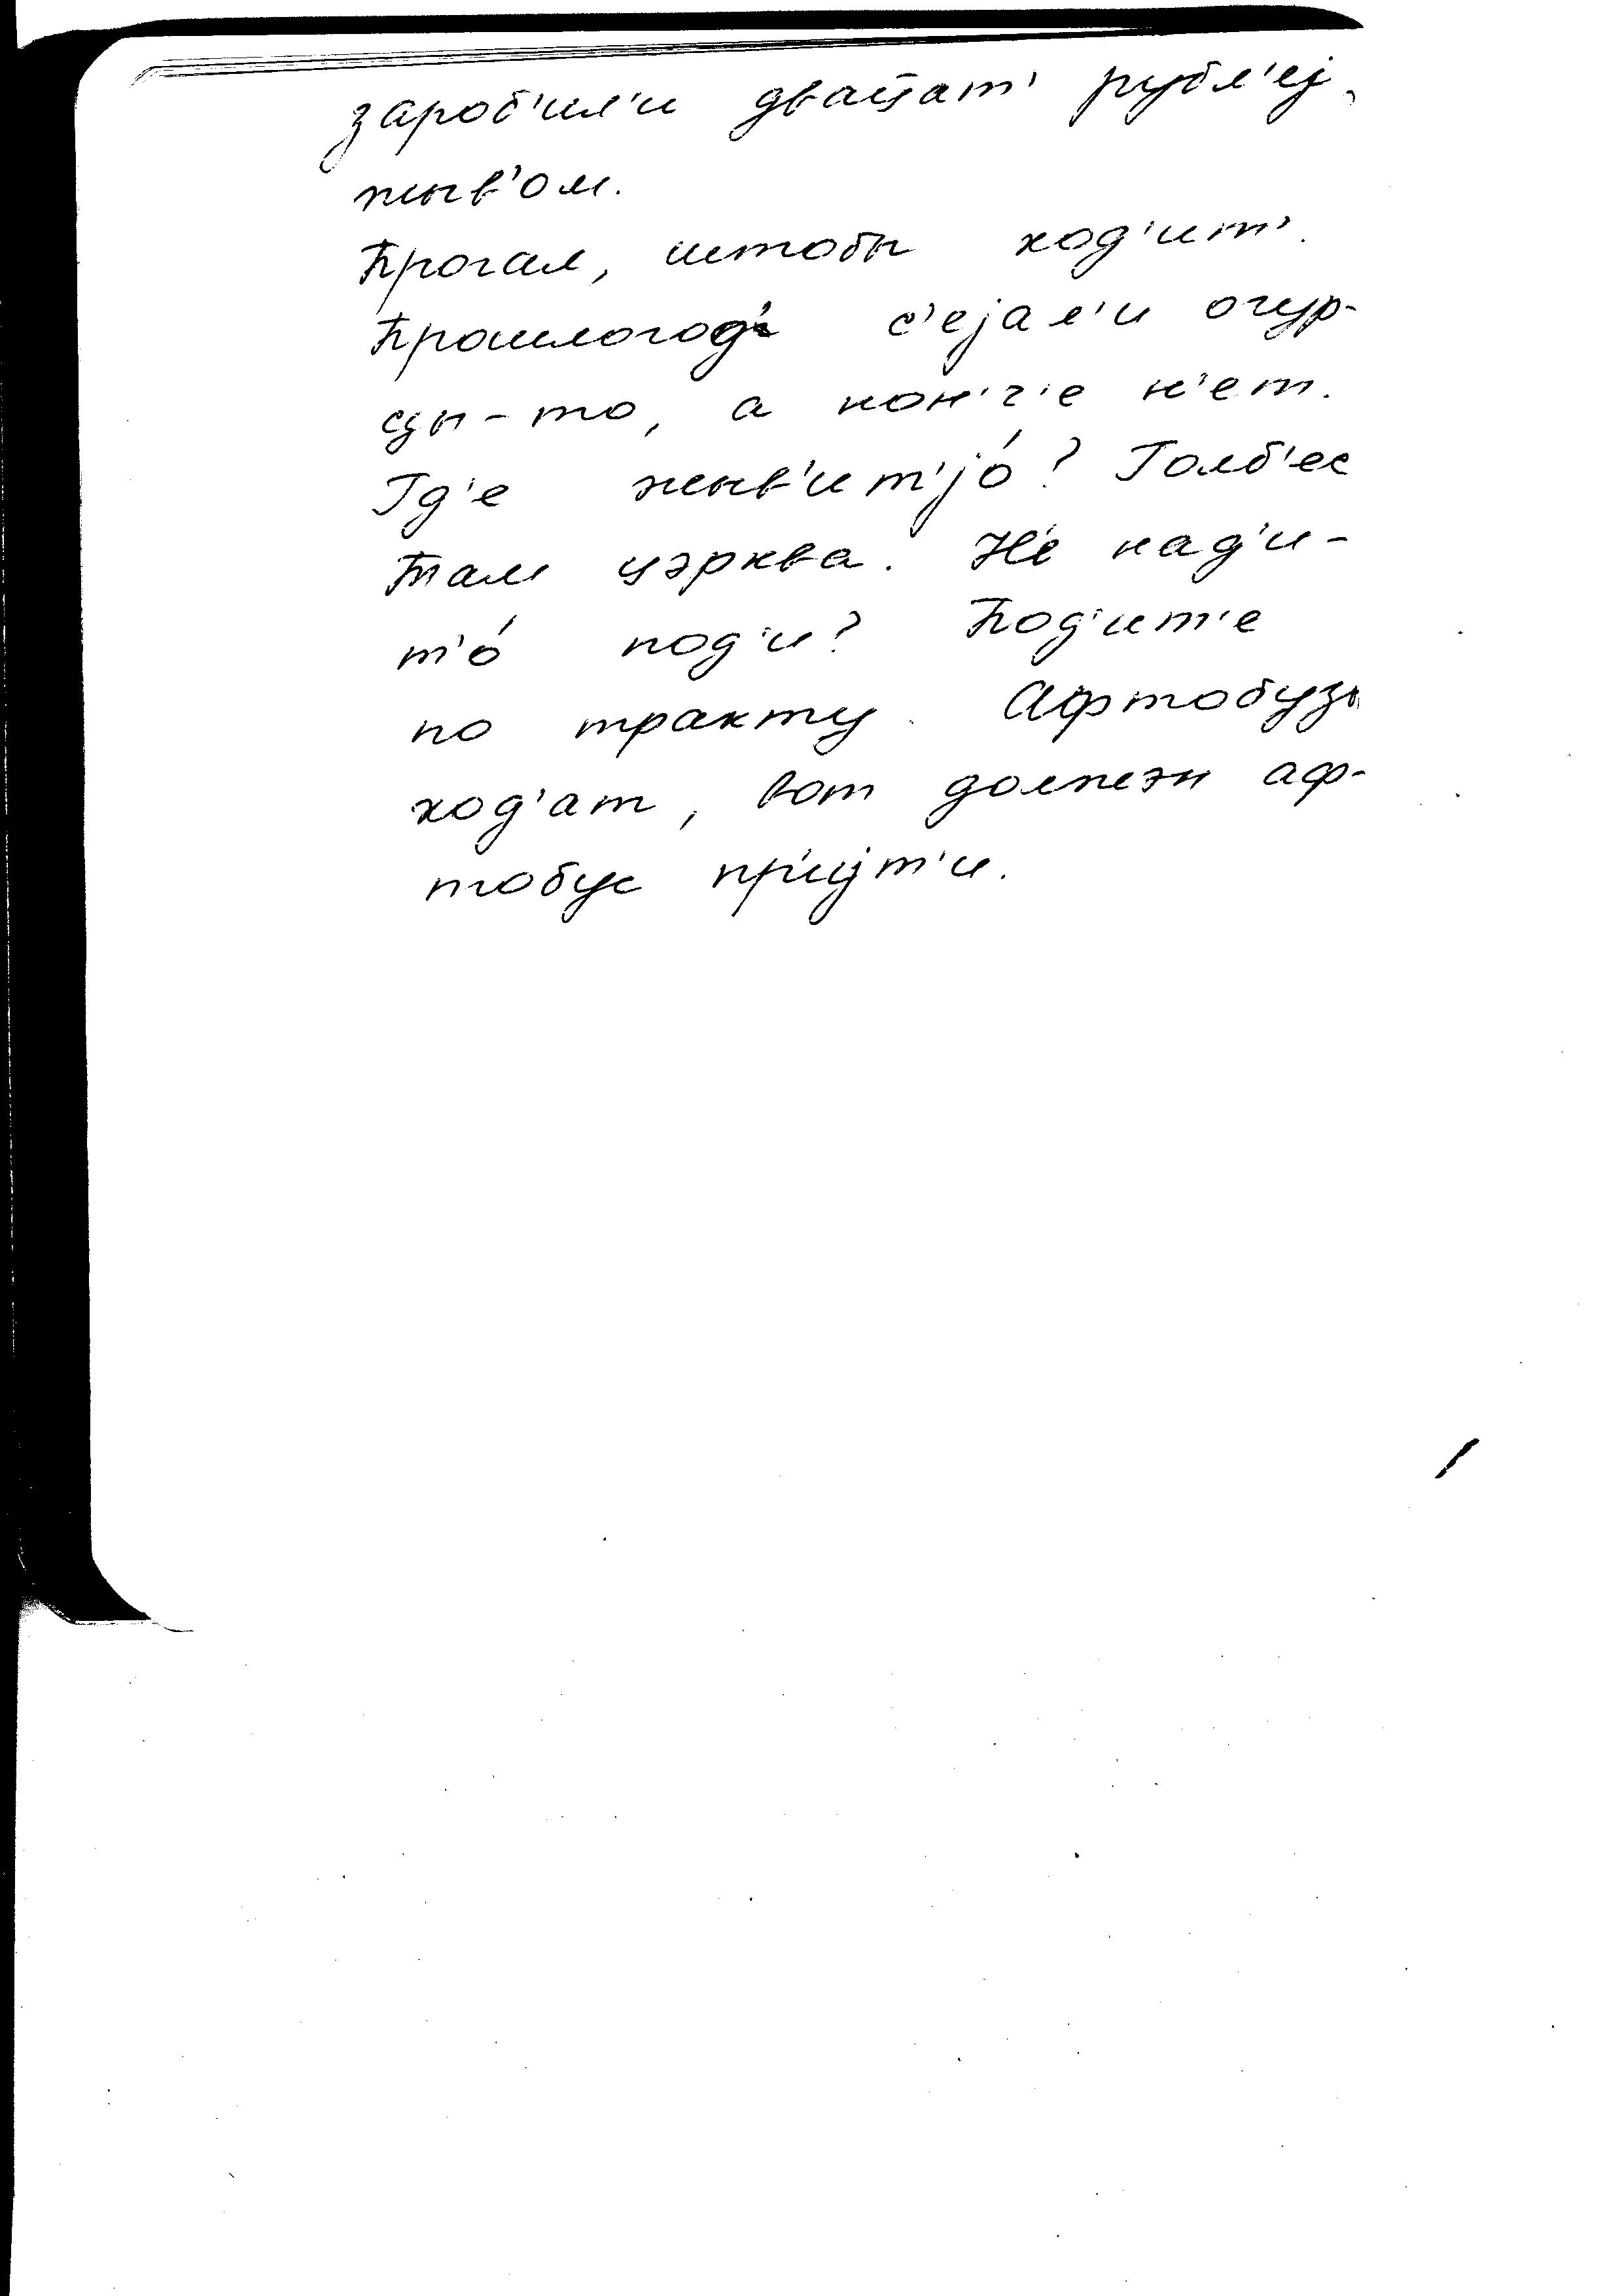 зароб'ил'и двац̄ат' рубл'еj,
жыв'ом.
Прогал, штобы ход'ит'.
Прошлогод' с'еjал'и огур-
цы-то, а нон'г'е н'ет.
Гд'е жыв'ит'jо́? Голб'ес
Там цэрква. Н'е над'и-
т'о́ под'и? Под'ит'е
по тракту. Афтобузы
ход'ат, вот должэн аф-
тобус пр'иjт'и.